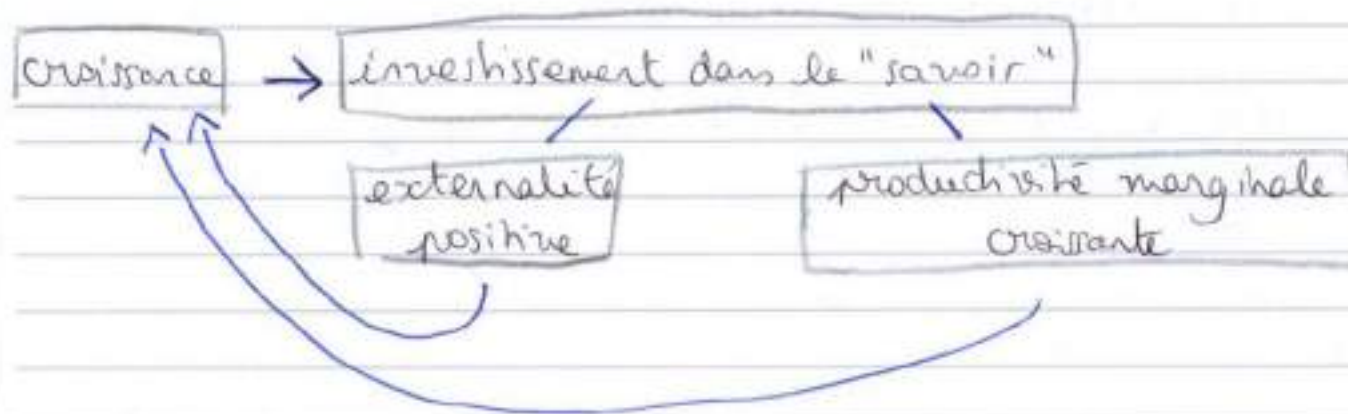 croissance → investissement dans le "savoir"
externalité productivité marginale
positive croissante